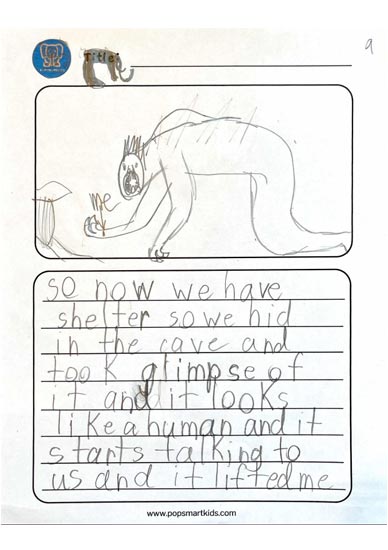 Title:
9
me
so now we have
shelter so we hid
in the cave and
took glimpse of
it and it looks
like a human and it
starts talking to
us and it lifted me
www.popsmartkids.com